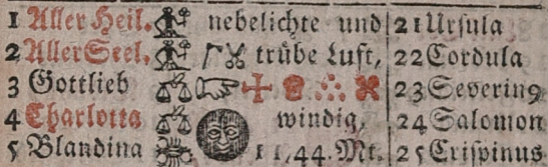 1 Aller Heil. nebelichte und 21 Ursula
2 Aller Seel. trübe Luft, 22 Cordula
3 Gottlieb 23 Severing
4 Charlotta windig, 24 Salomon
5 Blandina 11,44. Mt. 25 Crispinus